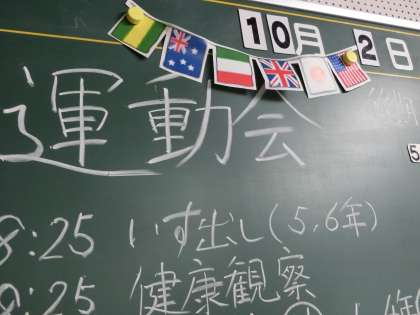 10月 2日
運動会
5
8:25 いす出し(5,6年)
8:25 健康観察